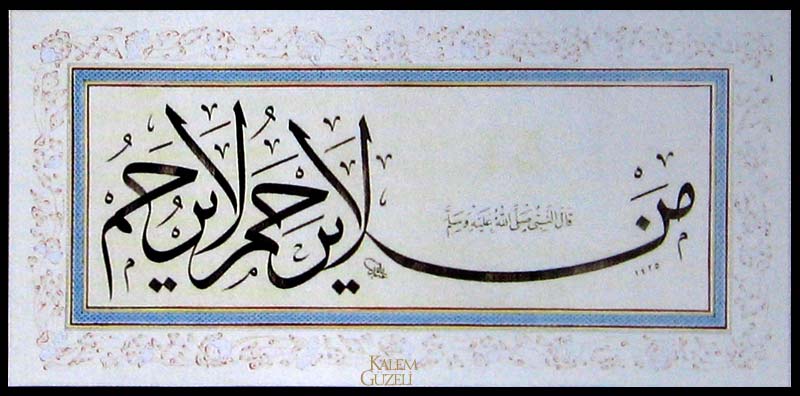 قال النبي صلى الله عليه وسلم
من لا يرحم لا يرحم
١٤٢٥
KALEM
GÜZELİ